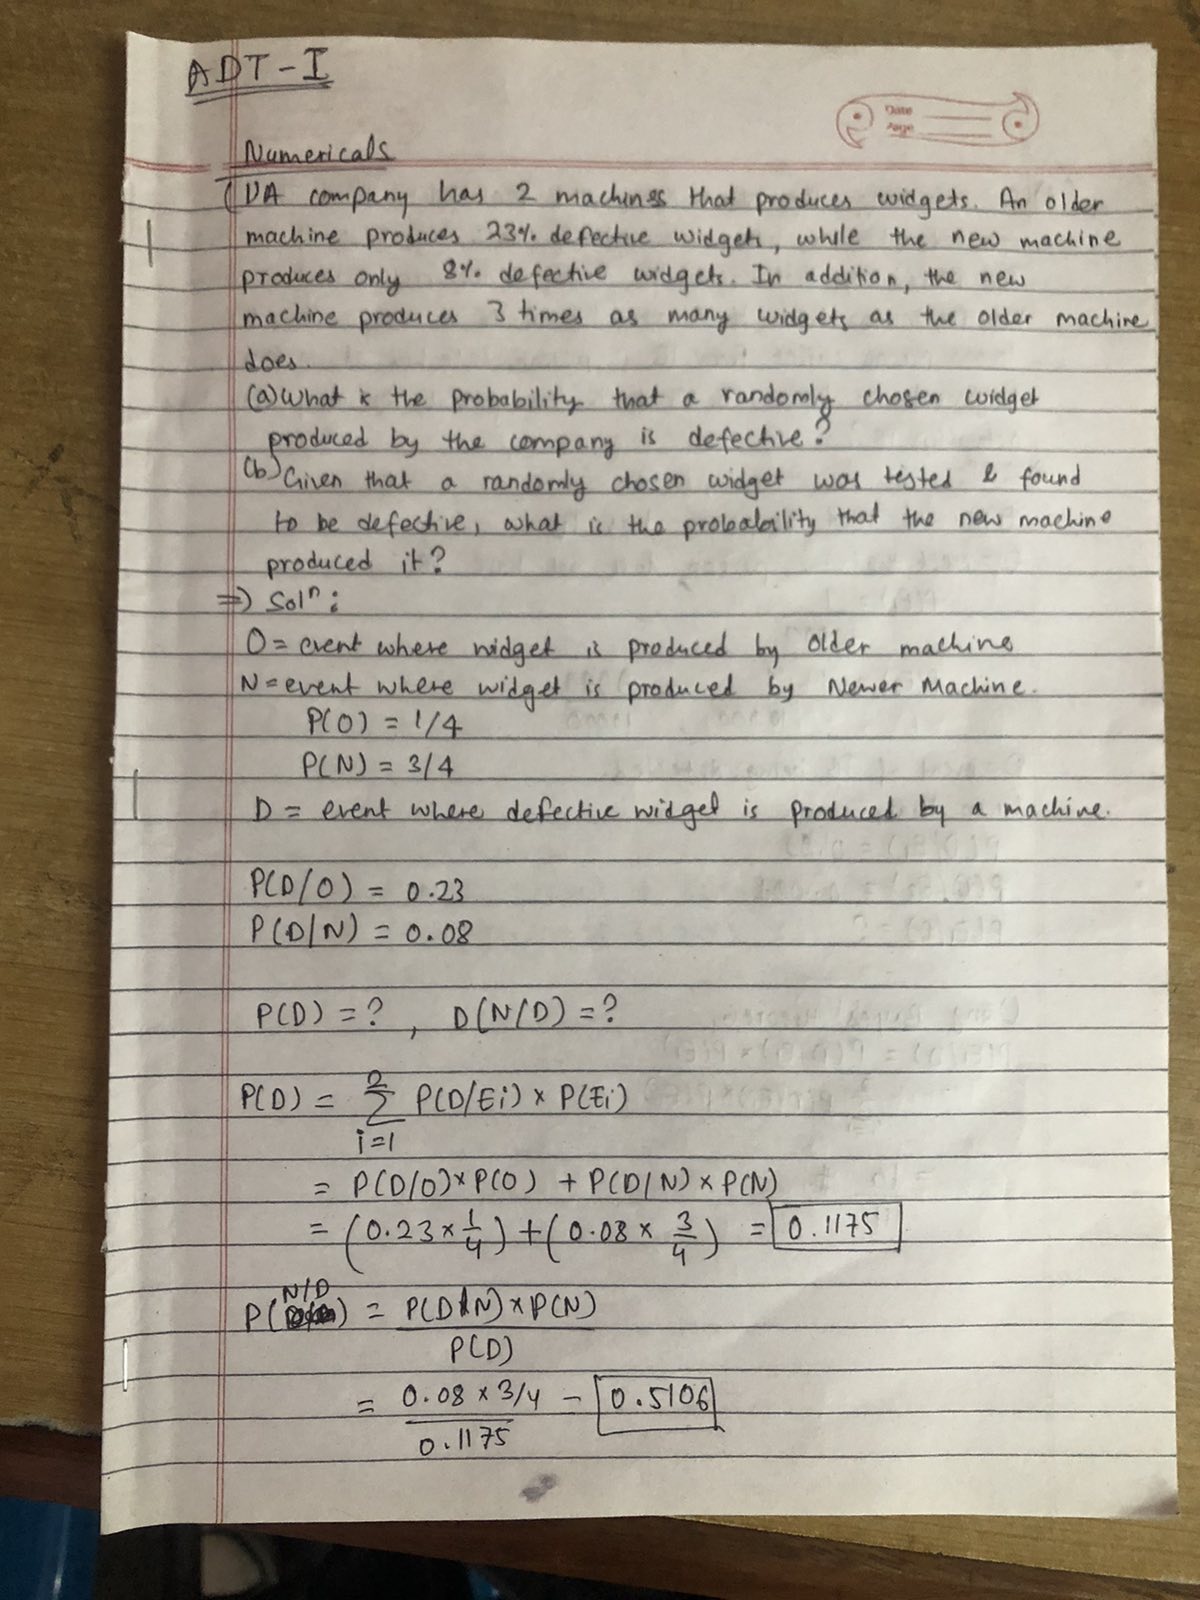 ADT-I
Date
Page
Numericals
1) A company has 2 machines that produces widgets. An older
machine produces 23% defective widgets, while the new machine
produces only 8% defective widgets. In addition, the new
machine produces 3 times as many widgets as the older machine
does.
(a) What is the probability that a randomly chosen widget
produced by the company is defective?
(b) Given that a randomly chosen widget was tested & found
to be defective, what is the probability that the new machine
produced it?
=) Solⁿ:
O = event where widget is produced by older machine
N = event where widget is produced by Newer Machine.
P(O) = 1/4
P(N) = 3/4
D = event where defective widget is produced by a machine.
P(D/O) = 0.23
P(D/N) = 0.08
P(D) = ? , D(N/D) = ?
P(D) = 2 Σ i=1 P(D/Ei) × P(Ei)
= P(D/O) × P(O) + P(D/N) × P(N)
= (0.23 × 1/4) + (0.08 × 3/4) = 0.1175
P(N/D) = P(D/N) × P(N)
P(D)
= 0.08 × 3/4 - 0.5106
0.1175